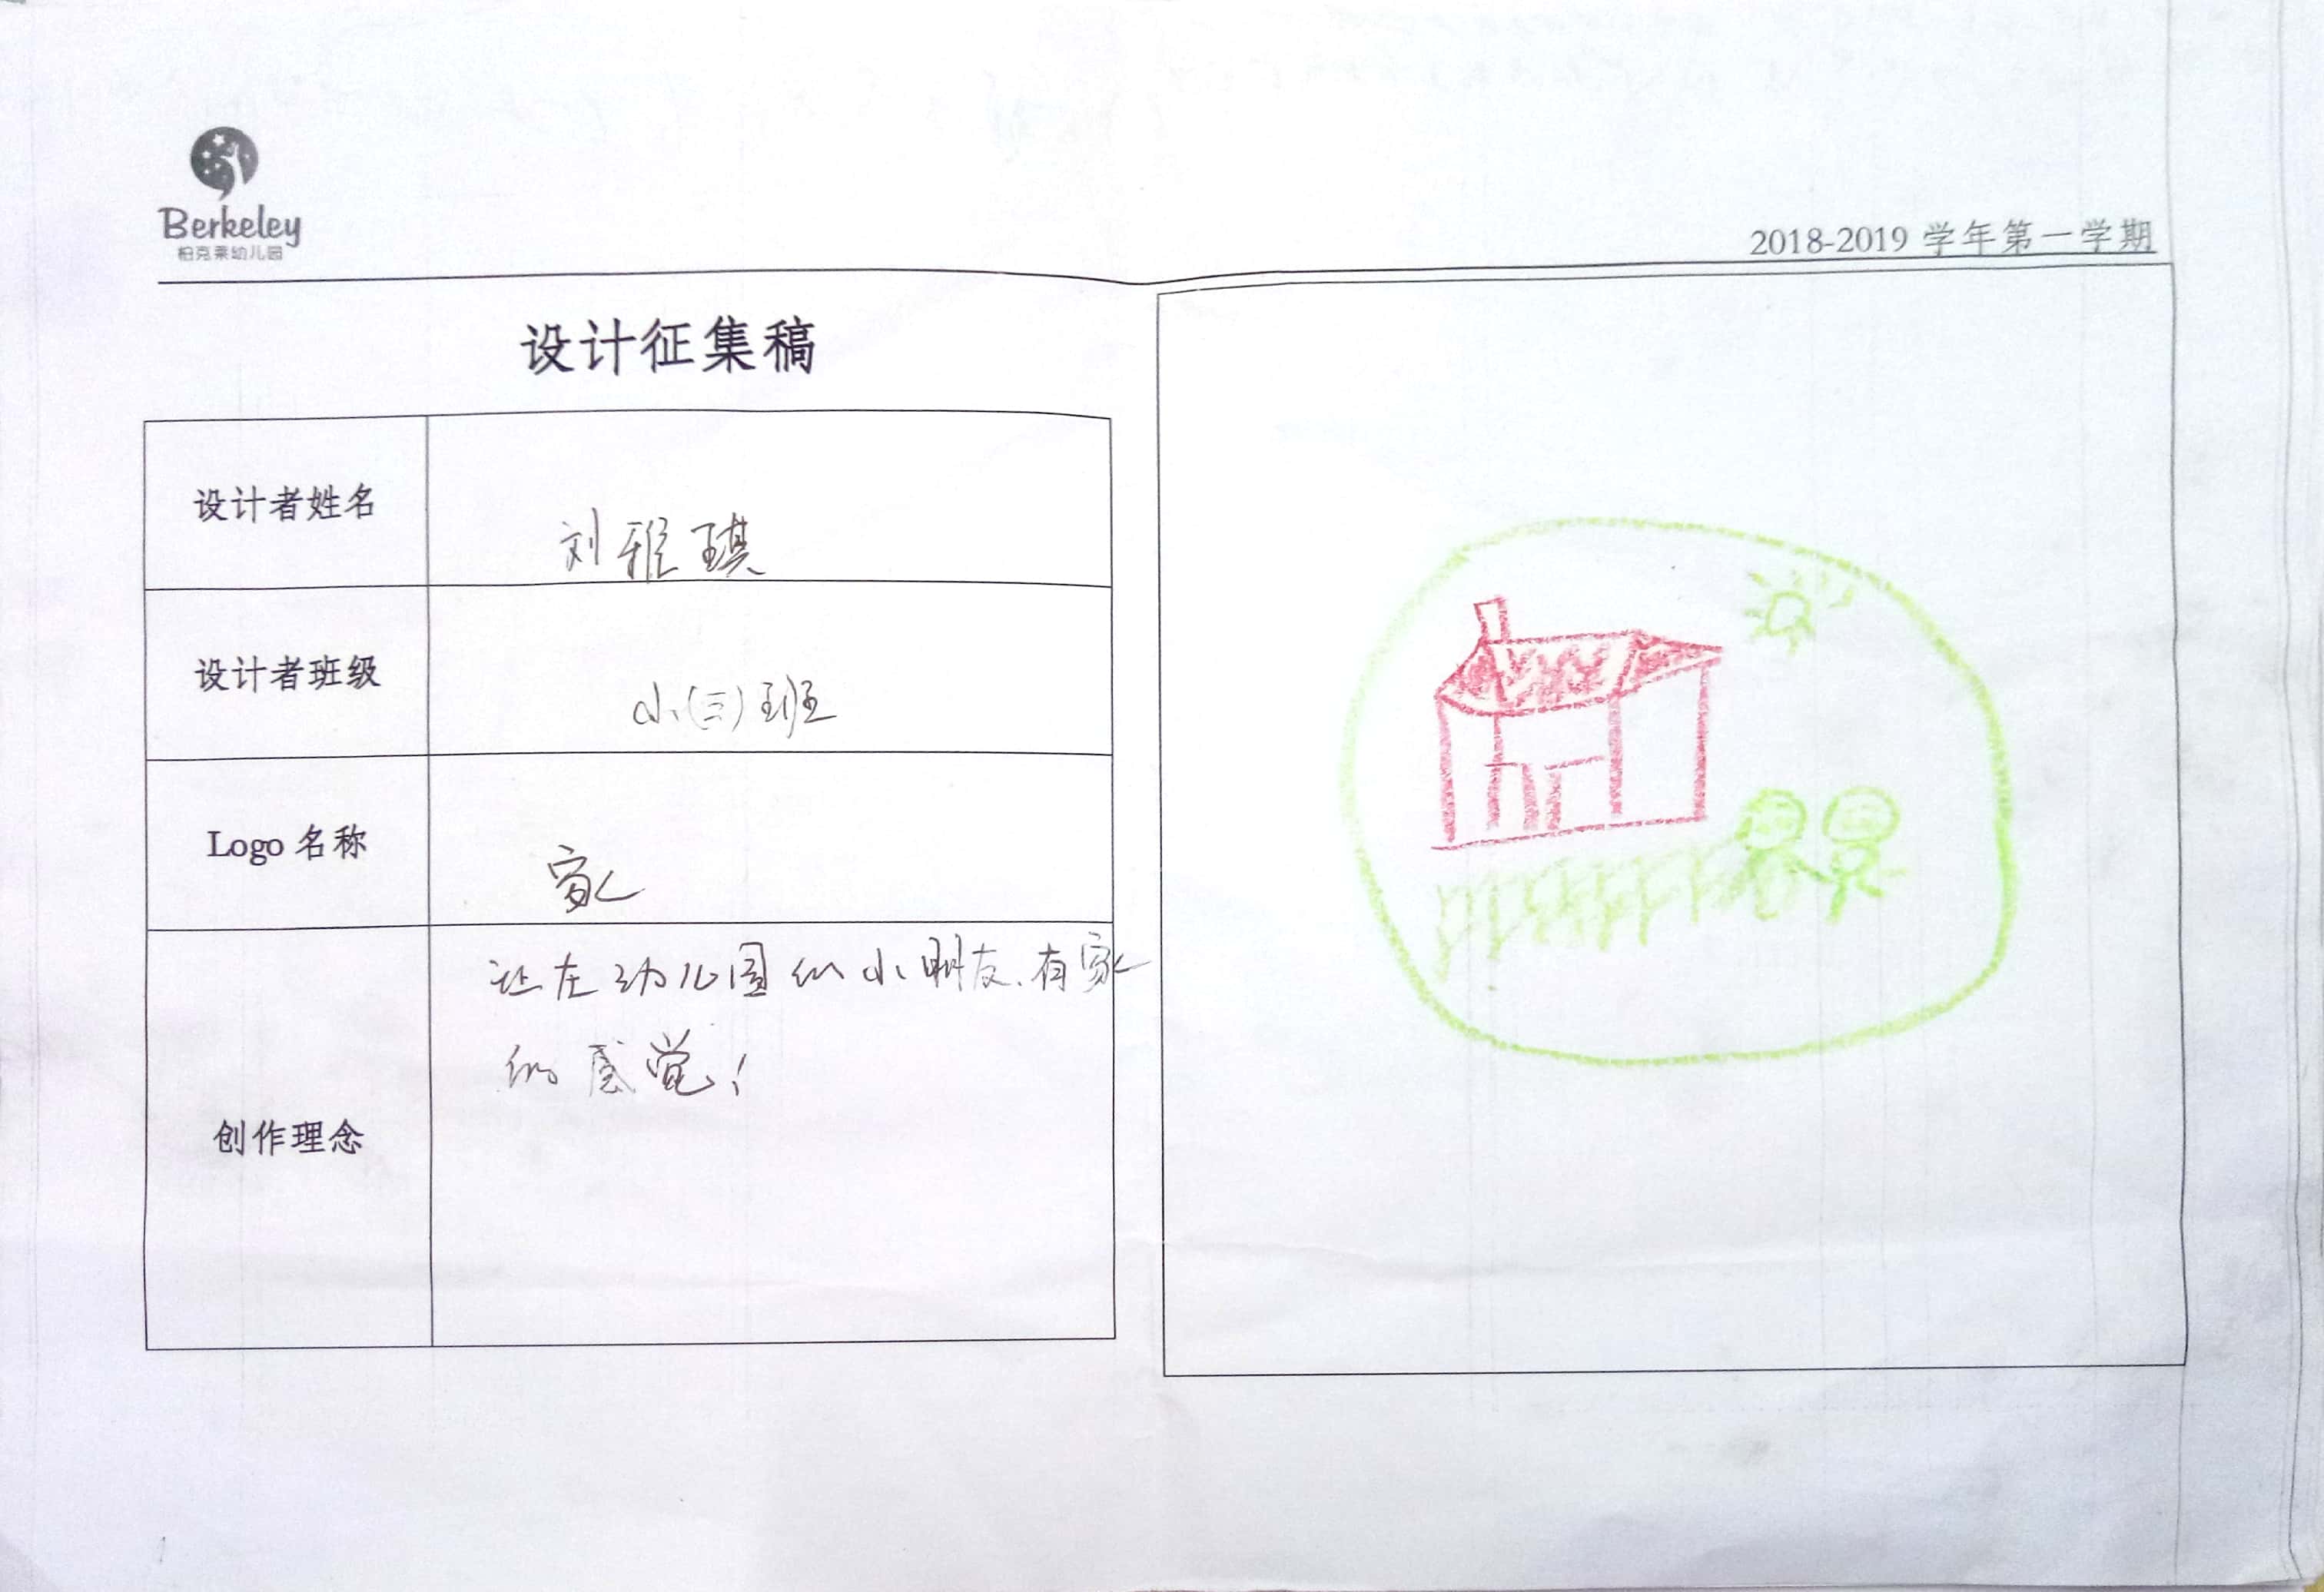 Berkeley
柏克莱幼儿园
2018-2019 学年第一学期
设计征集稿
设计者姓名
刘雅琪
设计者班级
小(三)班
Logo 名称
家
创作理念
让在幼儿园的小朋友、有家
的感觉！